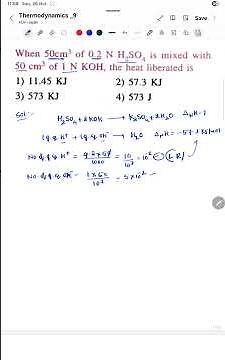 Thermodynamics _9
Save
When 50cm³ of 0.2 N H₂SO₄ is mixed with
50 cm³ of 1 N KOH, the heat liberated is
1) 11.45 KJ 2) 57.3 KJ
3) 573 KJ 4) 573 J
Sol:-
H₂SO₄ + 2KOH → K₂SO₄ + 2H₂O
1g.eq H⁺ + 1g.eq OH⁻ → H₂O
No of g.eq H⁺ = 0.2×50/1000 = 10/10³ = 10⁻²
No of g.eq OH⁻ = 1×50/10³ = 5×10⁻²